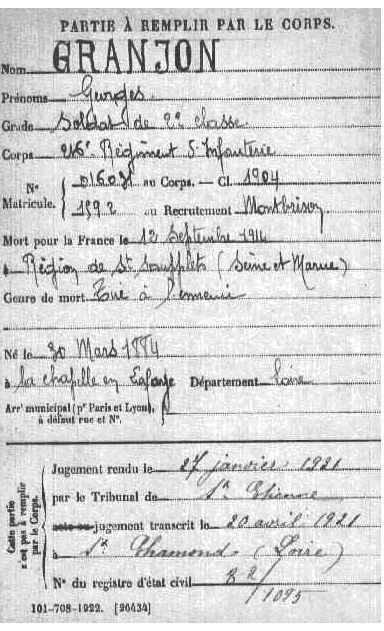 PARTIE À REMPLIR PAR LE CORPS.
Nom GRANJON
Prénoms Georges
Grade Soldat de 2e classe
Corps 216e Régiment d'Infanterie
N° Matricule. 01603 au Corps. — Cl. 1904
1592 au Recrutement Montbrison
Mort pour la France le 12 Septembre 1914
à Région de St Soupplets (Seine et Marne)
Genre de mort Tué à l'ennemi
Né le 30 Mars 1884
à la chapelle en Lafaye Département Loire
Arrt municipal (pr Paris et Lyon),
à défaut rue et N°.
Cette partie n'est pas à remplir par le Corps.
Jugement rendu le 27 janvier 1921
par le Tribunal de St Etienne
acte ou jugement transcrit le 20 avril 1921
à St Chamond (Loire)
N° du registre d'état civil 82/1095
101-708-1922. [26434]